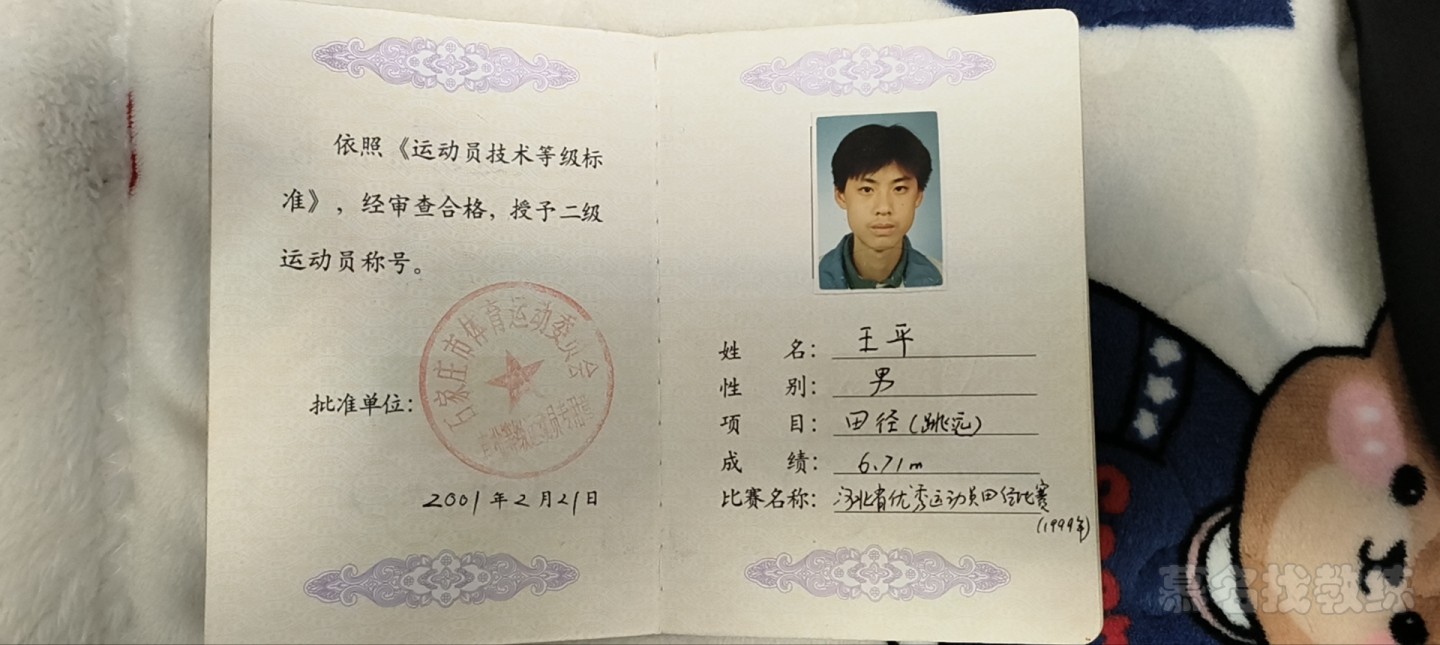 依照《运动员技术等级标
准》，经审查合格，授予二级
运动员称号。
批准单位：
石家庄市体育运动委员会
2001年2月21日
姓 名： 王平
性 别： 男
项 目： 田径（跳远）
成 绩： 6.71m
比赛名称： 河北省优秀运动员田径比赛
（1999年）
慕名找教练